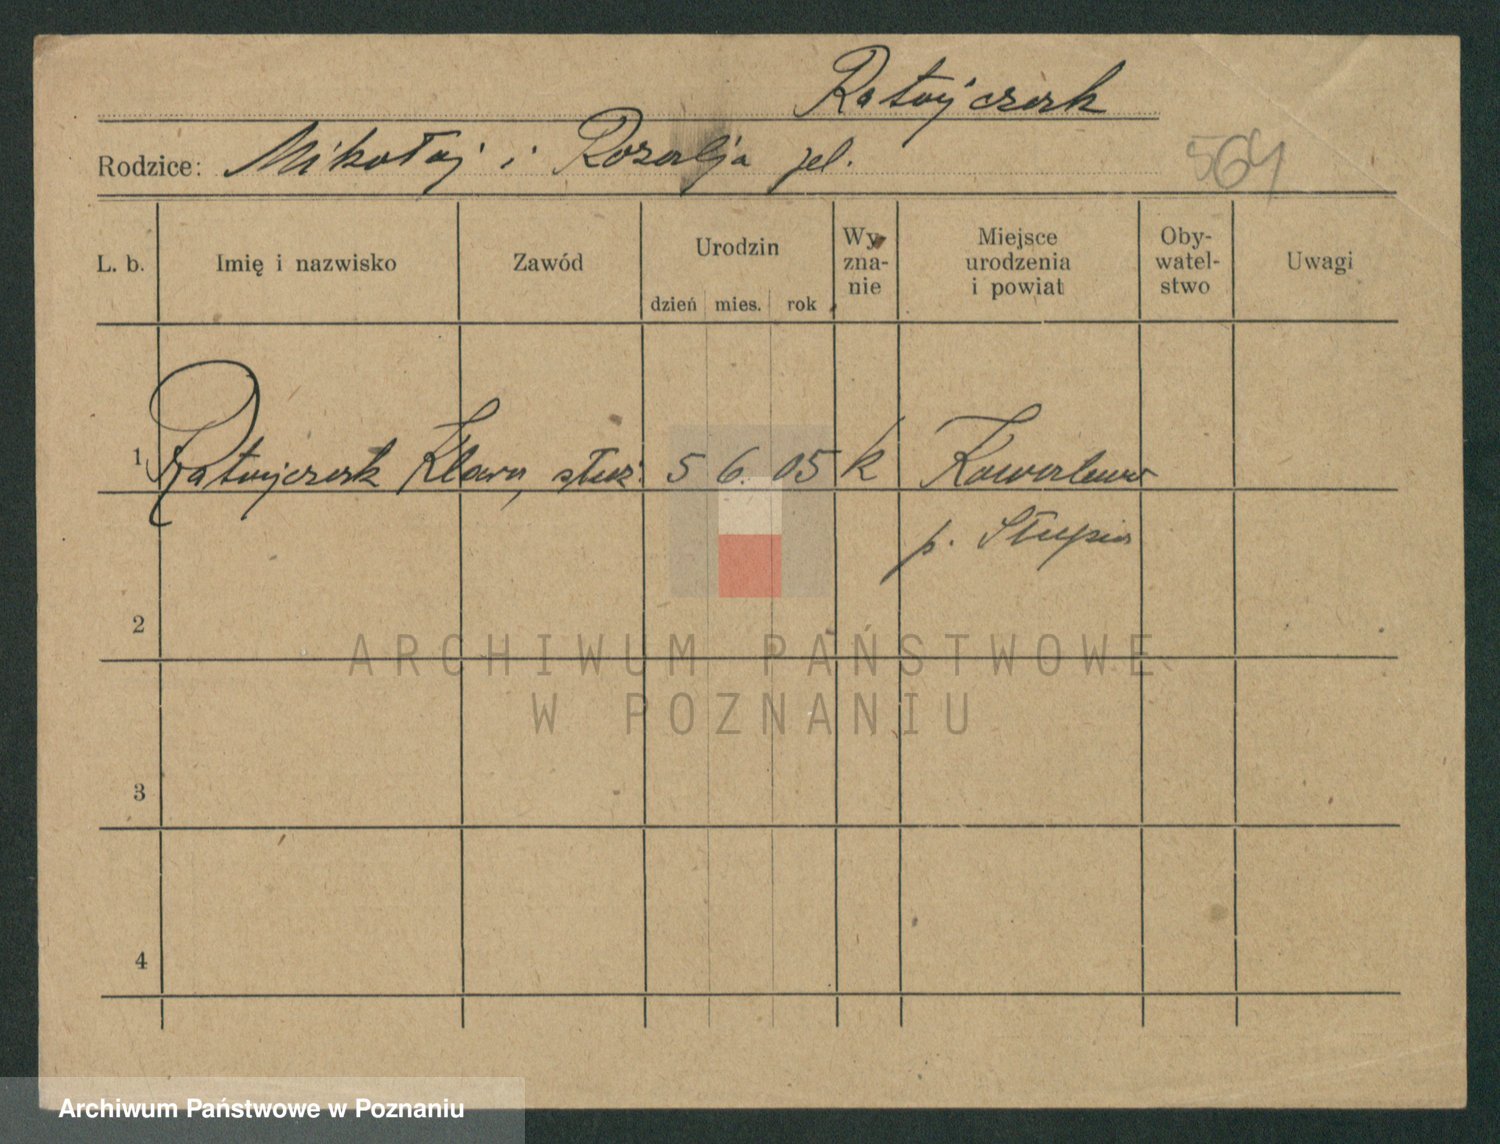 Ratajczak
Rodzice: Mikołaj i Rozalja
564
L. b. Imię i nazwisko Zawód Urodzin dzień mies. rok Wy-zna-nie Miejsce urodzenia i powiat Oby-watel-stwo Uwagi
1 Ratajczak Klara, służ. 5 6. 05 k
p. Słupia
2
ARCHIWUM PAŃSTWOWE
W POZNANIU
3
4
Archiwum Państwowe w Poznaniu